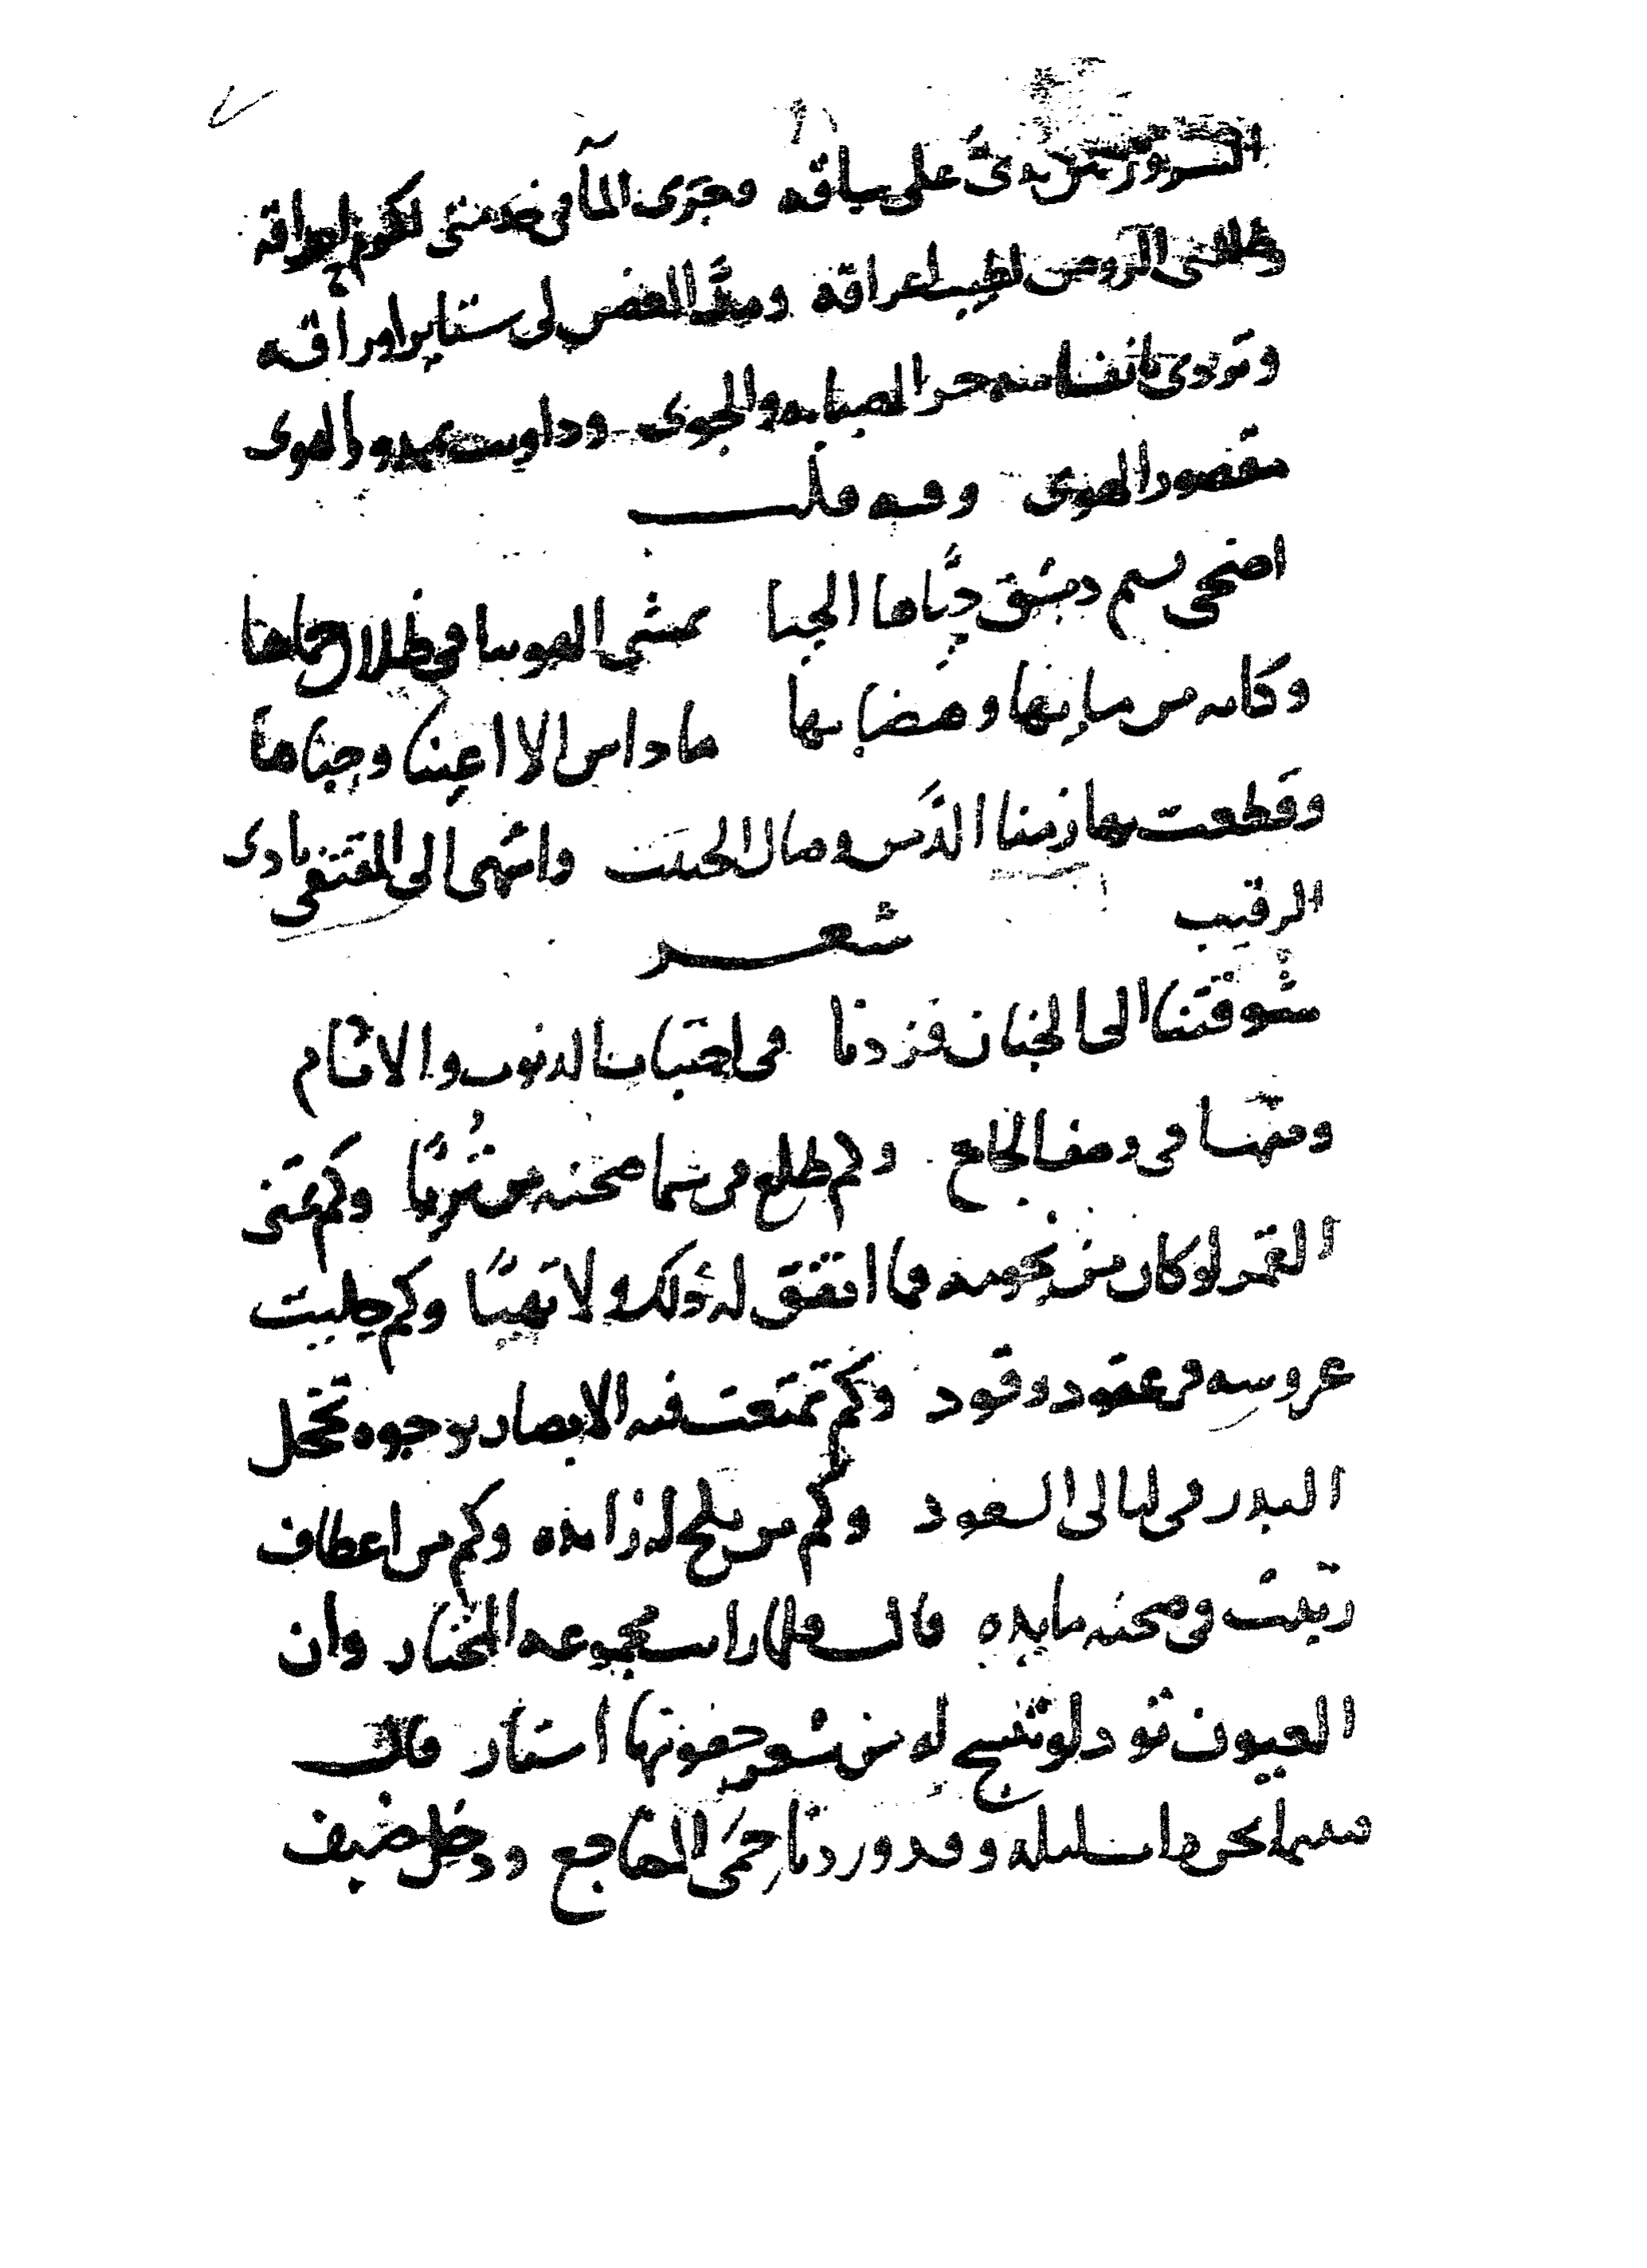 السرور بين يدى على ساقه ويجرى المآ فى خدمتى لكرم
وظللنى الروض لطيب اعراقه ومد الغصن لى ستاير اوراقه
وتردى بانفاسه حر الصبابه والجوى وداويت بممدود الهوى
مقصور الهوى وفيه قلت
اضحى نسيم دمشق حيّاها الحيا يمشى الهوينا فى ظلال حماها
وكانه من مايها وهضابها ما داس الا اعينا وجباها
وقطعت بها زمنا الذّ من وصال الحبيب واشهى الى المقتفى نادى
الرقيب شعر
شوقتنا الى الجنان فزدنا فى اجتناب الذنوب والاثام
ومنها فى وصف الجامع وكم طلع فى سما صحنه من ثريّا وكم تمنى
القمر لو كان من نجومه فما اتفق له ذلك ولا تهيّا وكم جليت
عروسه فى عقود وقود وكم تمتعت فيه الابصار بوجوه تخجل
البدر فى ليالى السعود وكم من مليح له زايده وكم من اعطاف
رتبت فى صحنه مايده قال فلما رايت مجموعه المختار وان
العيون تود لو تنسج له من شعر جفونها استار قال
فبينما نحن ذات ليلة وقد وردنا حمى المضاجع ودخل ضيف